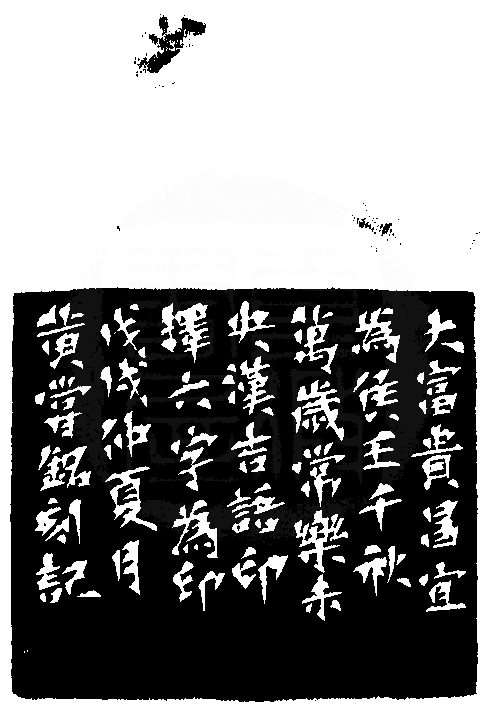 大富貴昌宜
為侯王千秋
萬歲常樂未
央漢吉語印
擇六字為印
戊戌仲夏月
黄嘗銘刻記